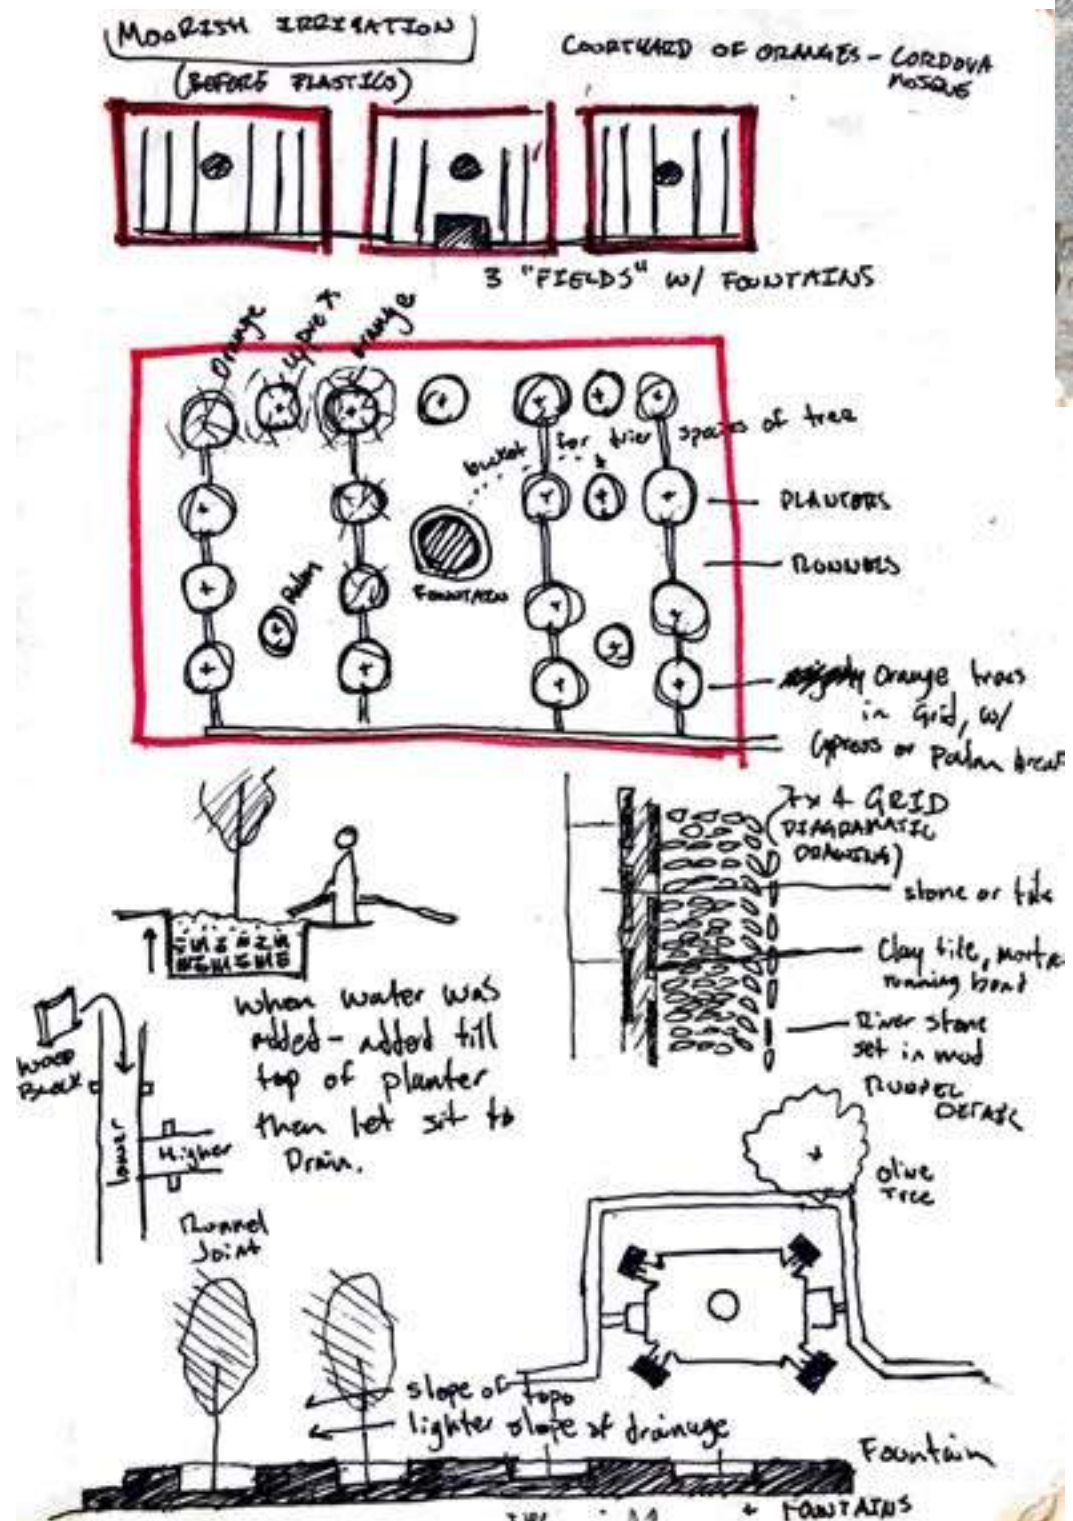 MOORISH IRRIGATION
(BEFORE PLASTICS)
COURTYARD OF ORANGES - CORDOVA
MOSQUE
3 "FIELDS" W/ FOUNTAINS
Orange
orange
bucket for
of tree
PLANTERS
RUNNELS
Palm
FOUNTAIN
Orange trees
in Grid, w/
Cypress or Palm
7x4 GRID
(DIAGRAMATIC
DRAWING)
stone or tile
Clay tile,
running bond
River stone
set in mud
RUNNEL
DETAIL
When water was
added - added till
top of planter
then let sit to
Drain.
WOOD
BLOCK
lower
Higher
Runnel
Joint
olive
Tree
slope of topo
lighter slope of drainage
Fountain
+ FOUNTAINS